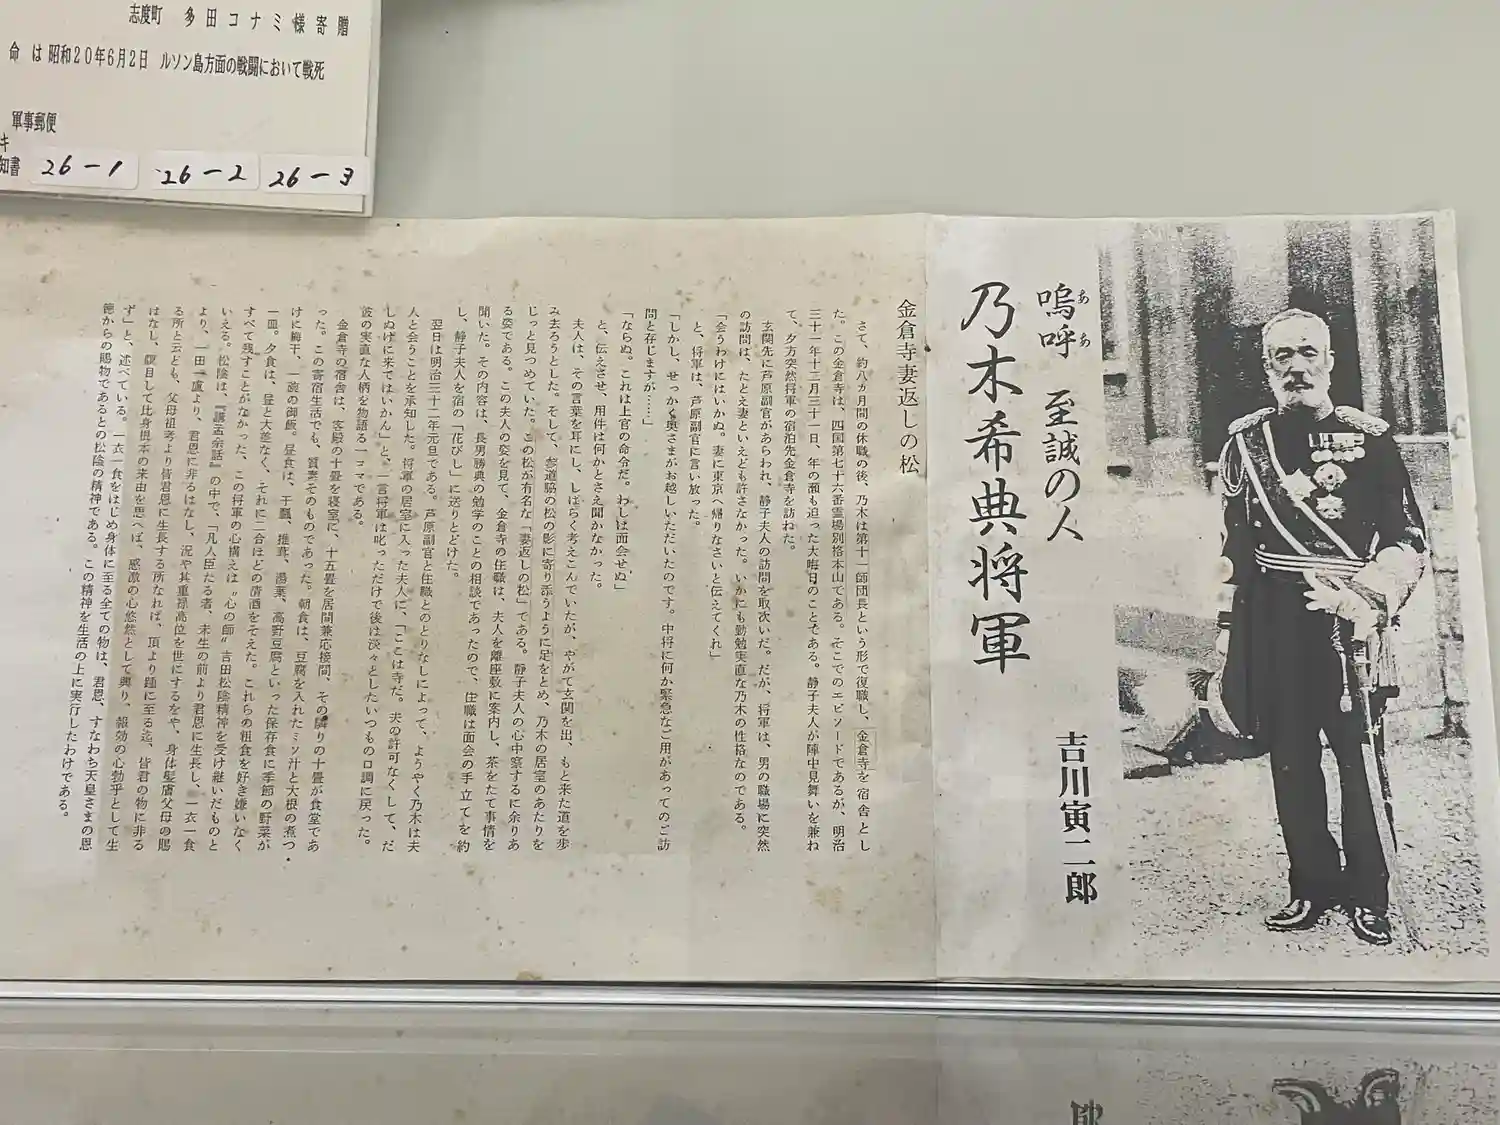 志度町 多田コナミ様寄贈
命 は 昭和20年6月2日 ルソン島方面の戦闘において戦死
軍事郵便
キ
知書
26-1
26-2
26-3
嗚呼 至誠の人
ああ
乃木希典将軍
吉川寅二郎
金倉寺妻返しの松
さて、約八ヵ月間の休職の後、乃木は第十一師団長という形で復職し、金倉寺を宿舎とし
た。この金倉寺は、四国第七十六番霊場別格本山である。そこでのエピソードであるが、明治
三十一年十二月三十一日、年の瀬も迫った大晦日のことである。静子夫人が陣中見舞いを兼ね
て、夕方突然将軍の宿泊先金倉寺を訪ねた。
玄関先に芦原副官があらわれ、静子夫人の訪問を取次いだ。だが、将軍は、男の職場に突然
の訪問は、たとえ妻といえども許さなかった。いかにも勤勉実直な乃木の性格なのである。
「会うわけにはいかぬ。妻に東京へ帰りなさいと伝えてくれ」
と、将軍は、芦原副官に言い放った。
「しかし、せっかく奥さまがお越しいただいたのです。中将に何か緊急なご用があってのご訪
問と存じますが……」
「ならぬ。これは上官の命令だ。わしは面会せぬ」
と、伝えさせ、用件は何かとさえ聞かなかった。
夫人は、その言葉を耳にし、しばらく考えこんでいたが、やがて玄関を出、もと来た道を歩
み去ろうとした。そして、参道脇の松の影に寄り添うように足をとめ、乃木の居室のあたりを
じっと見つめていた。この松が有名な「妻返しの松」である。静子夫人の心中察するに余りあ
る姿である。この夫人の姿を見て、金倉寺の住職は、夫人を離座敷に案内し、茶をたて事情を
聞いた。その内容は、長男勝典の勉学のことの相談であったので、住職は面会の手立てを約
し、静子夫人を宿の「花びし」に送りとどけた。
翌日は明治三十二年元旦である。芦原副官と住職とのとりなしによって、ようやく乃木は夫
人と会うことを承知した。将軍の居室に入った夫人に、「ここは寺だ。夫の許可なくして、だ
しぬけに来てはいかん」と、一言将軍は叱っただけで後は淡々としたいつもの口調に戻った。
彼の実直な人柄を物語る一コマである。
金倉寺の宿舎は、客殿の十畳を寝室に、十五畳を居間兼応接間、その隣りの十畳が食堂であ
った。この寄宿生活でも、質素そのものであった。朝食は、豆腐を入れたミソ汁と大根の煮つ
けに梅干、一碗の御飯。昼食は、干瓢、椎茸、湯葉、高野豆腐といった保存食に季節の野菜が
一皿。夕食は、昼と大差なく、それに二合ほどの清酒をそえた。これらの粗食を好き嫌いなく
すべて残すことがなかった、この将軍の心構えは〝心の師〟吉田松陰精神を受け継いだものと
いえる。松陰は、『講孟余話』の中で、「凡人臣たる者、未生の前より君恩に生長し、一衣一食
より、一田一廬より、君恩に非るはなし、況や其重禄高位を世にするをや、身体髪膚父母の賜
る所と云ども、父母祖考より皆君恩に生長する所なれば、頂より踵に至る迄、皆君の物に非る
はなし、瞑目して此身根本の来由を思へば、感激の心悠然として興り、報効の心勃乎として生
ず」と、述べている。一衣一食をはじめ身体に至る全ての物は、君恩、すなわち天皇さまの恩
徳からの賜物であるとの松陰の精神である。この精神を生活の上に実行したわけである。